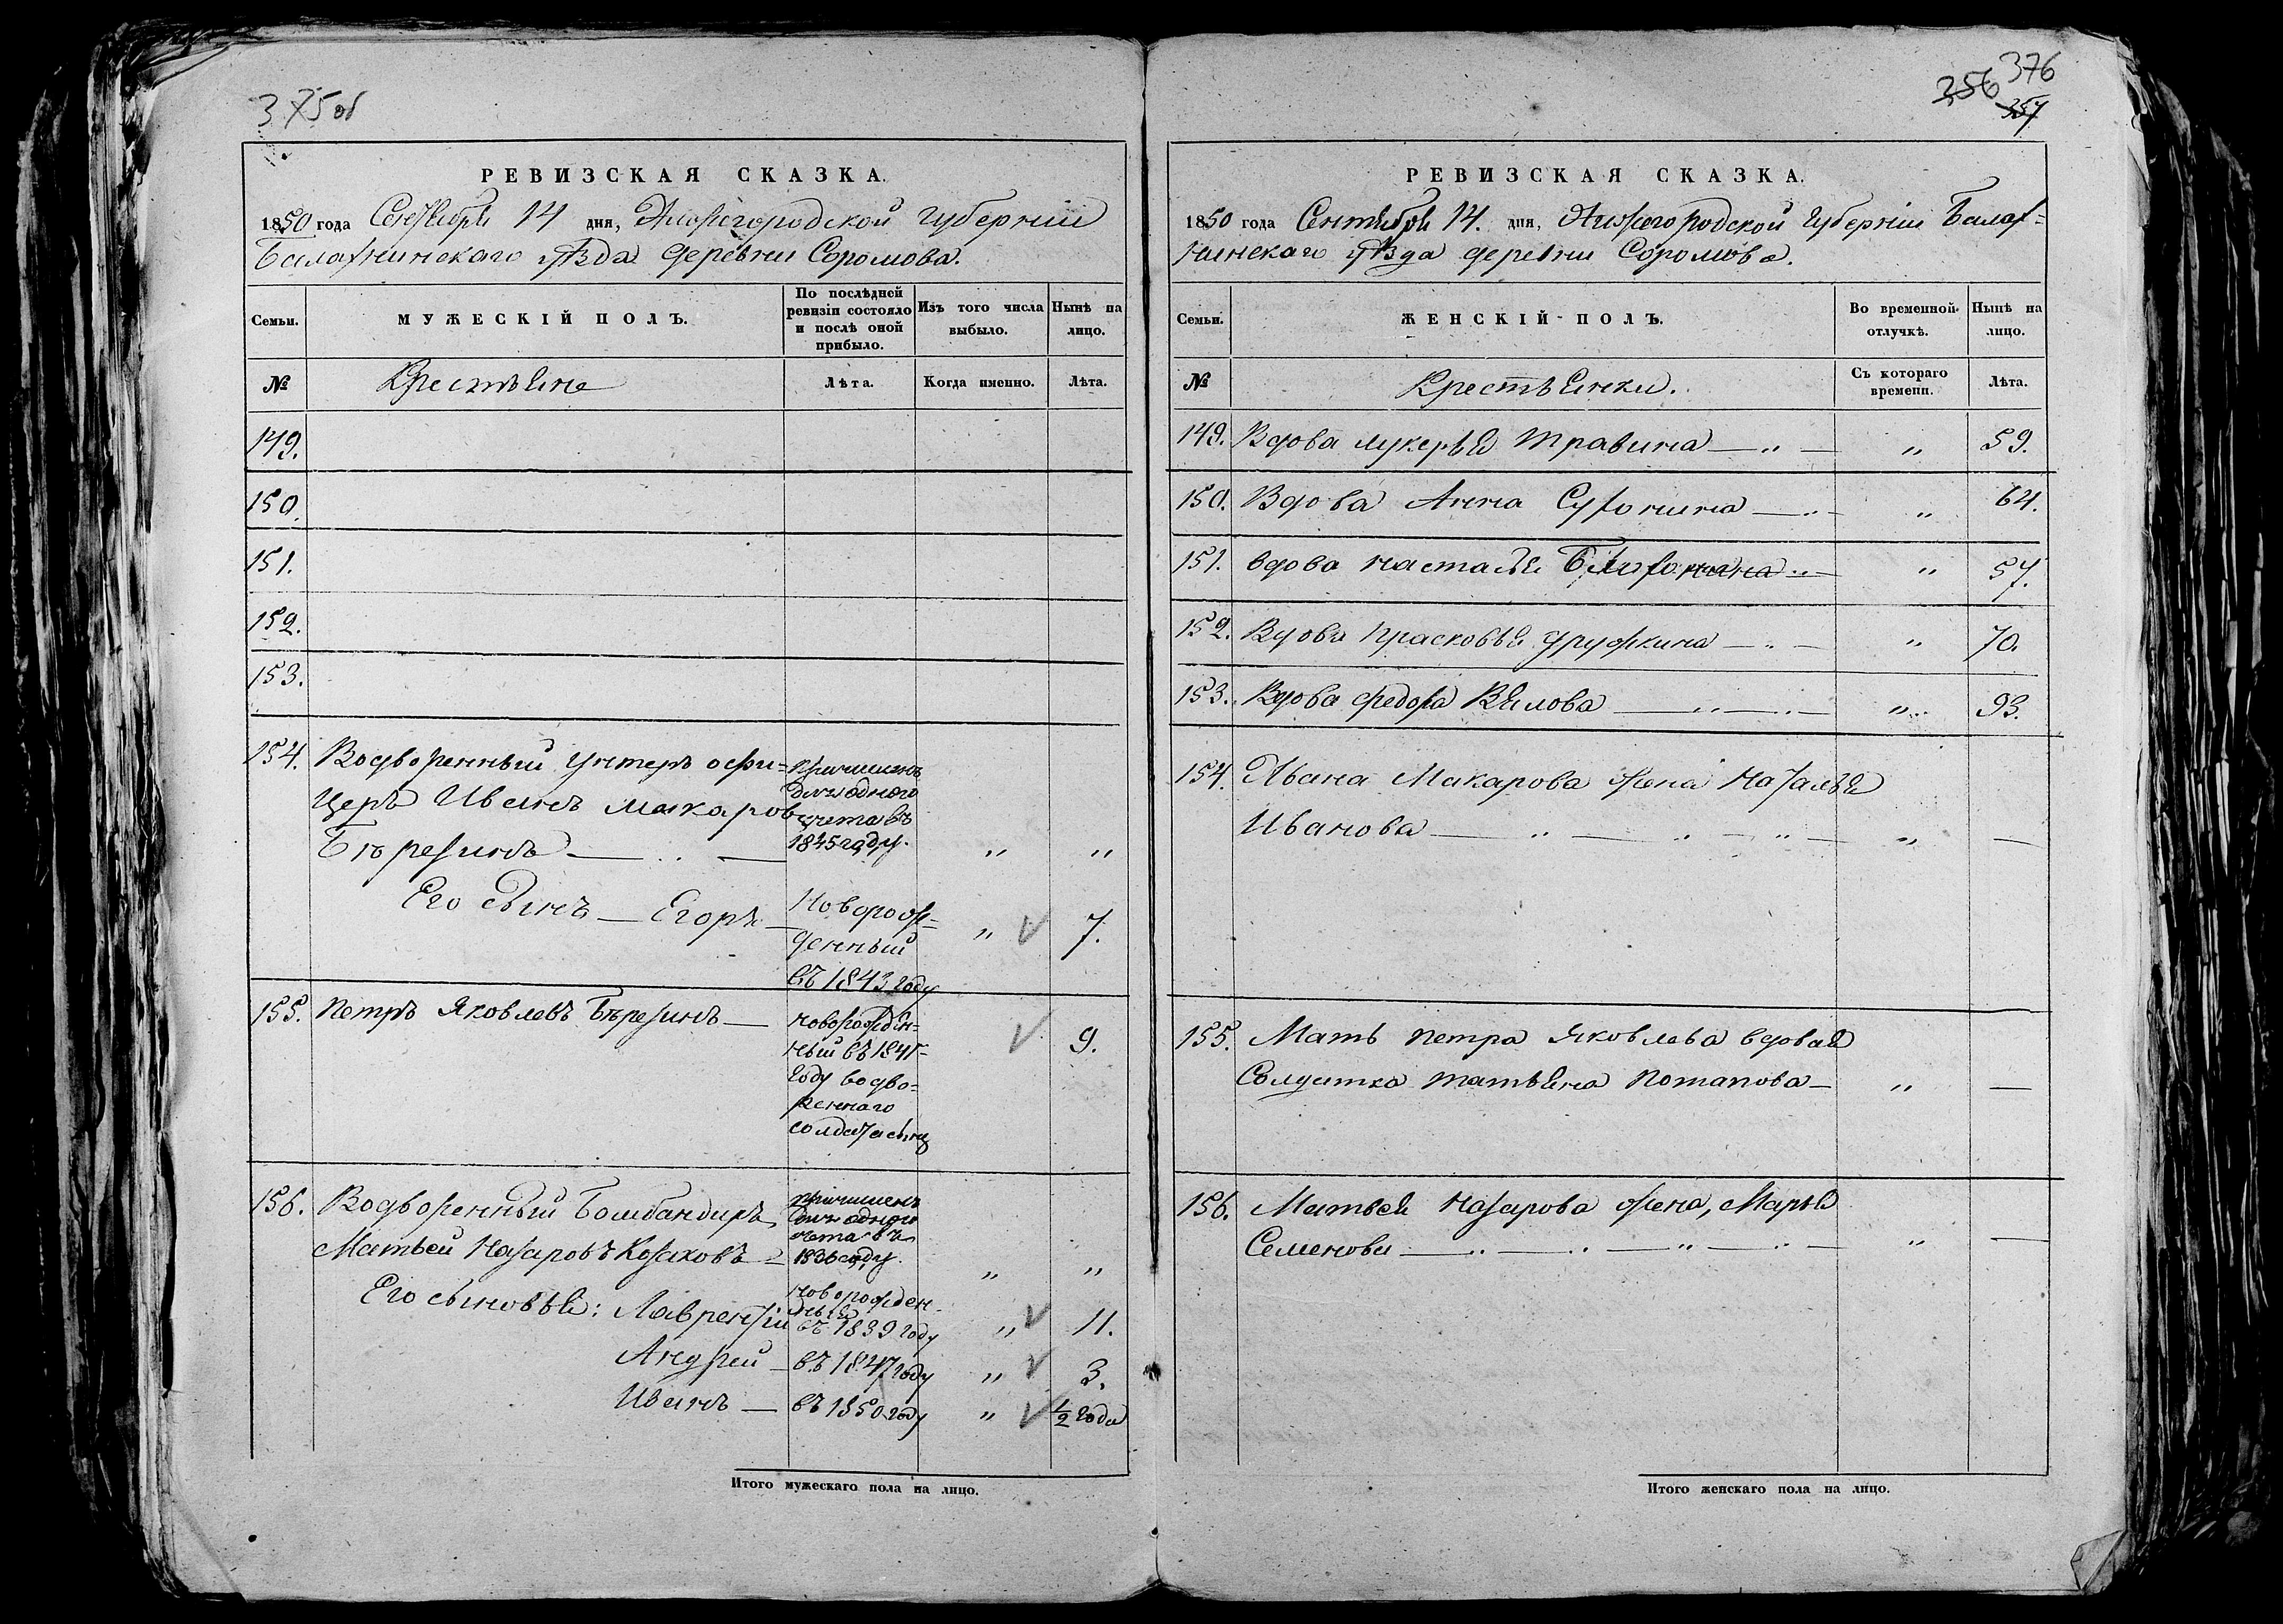 375об
РЕВИЗСКАЯ СКАЗКА.
1850 года Сентября 14 дня, Нижегородской губерніи
Балахнинскаго уѣзда деревни Соромова.
Семьи.
МУЖЕСКІЙ ПОЛЪ.
По послѣдней
ревизіи состояло
и послѣ оной
прибыло.
Изъ того числа
выбыло.
Нынѣ на
лицо.
№
Крестьяне
Лѣта.
Когда именно.
Лѣта.
149.
150.
151.
152.
153.
154. Водворенный Унтеръ офи=
церъ Иванъ Макаровъ
Березинъ — „ —
причисленъ
для одного
счета въ
1845 году.
„ „
Его сынъ — Егоръ —
Новорож=
денный
въ 1843 году
„ 7.
155. Петръ Яковлевъ Березинъ —
новорожден=
ный въ 1841
году водво=
реннаго
солдата сынъ
9.
156. Водворенный Бомбандиръ
Матвей Назаровъ Козаковъ
причисленъ
для одного
счета въ
1836 году.
„ „
Его сыновья: Лаврентій
новорожден
ные
въ 1839 году
„ 11.
Андрей — въ 1847 году „ 3.
Иванъ — въ 1850 году „ 1/2 года
Итого мужескаго пола на лицо.
376
356
357
РЕВИЗСКАЯ СКАЗКА.
1850 года Сентября 14. дня, Нижегородской Губерніи Балах=
нинскаго уѣзда деревни Соромова.
Семьи.
ЖЕНСКІЙ ПОЛЪ.
Во временной
отлучкѣ.
Нынѣ на
лицо.
№
Крестьянки.
Съ котораго
времени.
Лѣта.
149. Вдова Лукерья Травина — „ — „ 59.
150. Вдова Анна — „ — „ 64.
151. вдова Настасья — „ — „ 57.
152. Вдова Прасковья Дружкина — „ — „ 70.
153. Вдова Федора Вялова — „ — „ — „ 93.
154. Ивана Макарова жена Наталья
Иванова — „ — „ — „ — „ —
155. Мать Петра Яковлева вдовая
Солдатка Татьяна Потапова — „ —
156. Матвея Назарова жена, Марья
Семенова — „ — „ — „ — „ — „ —
Итого женскаго пола на лицо.